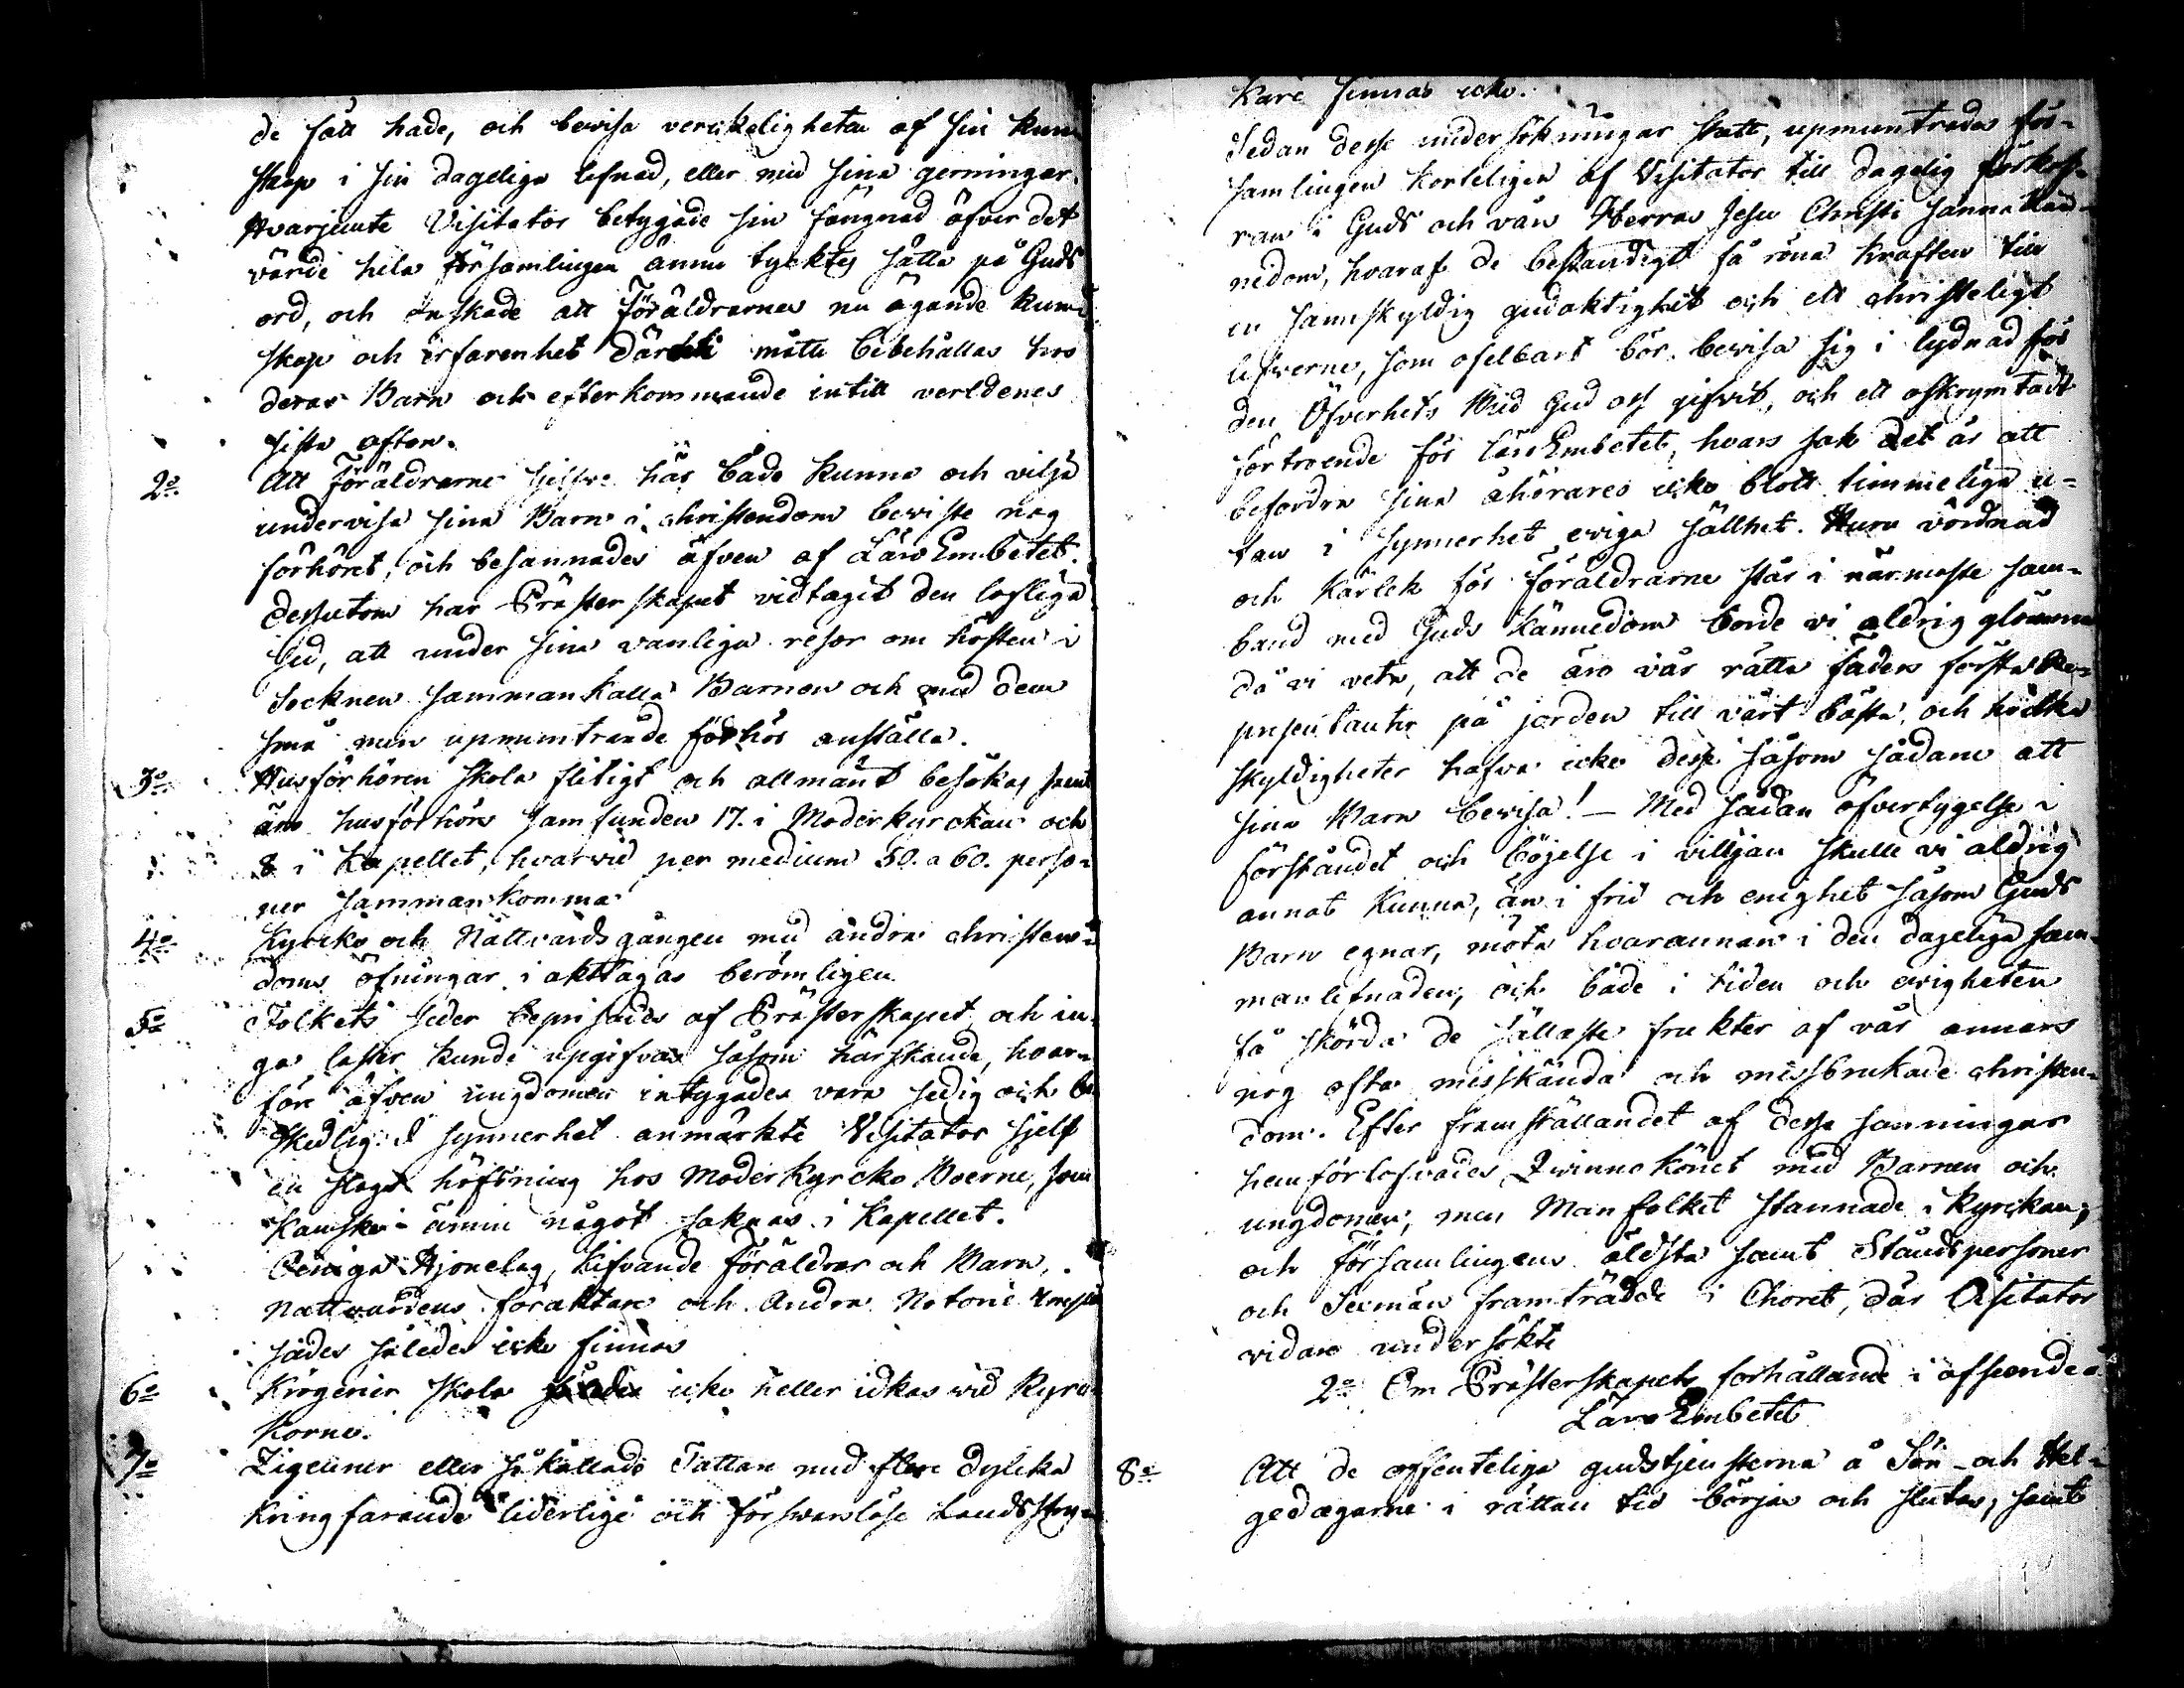 de fått hade, och bevisa verckeligheten af sin kun-
skap i sin dageliga lefnad, eller med sina gerningar.
Hvarjemte Visitator betygade sin fängnad öfver det
värde hela församlingen ännu tycktes sätta på Guds
ord, och önskade att Föräldrarnes nu ägande kund-
skap och erfarenhet däri måtte bibehållas hos
deras Barn och efterkommande intill verldenes
sista afton.
2o Att Föräldrarne sjelfve här både kunna och vilja
undervisa sina Barn i christendom beviste nog
förhöret, och besannades äfven af LäroEmbetet.
dessutom har Prästerskapet vidtagit den lofliga
sed, att under sina vanliga resor om hösten i
Socknen sammankalla Barnen och med dem
små men upmuntrande förhör anställa.
3o Husförhören skola flitigt och allmänt besökas samt
äro husförhörs samfunden 17. i Moderkyrckan och
8 i Kapellet, hvarvid per medium 50. a 60. perso-
ner sammankomma
4o Kyrcko och Nattvards gången med andra christen-
doms öfningar i akttagas berömligen
5o Folkets seder beprisades af Prästerskapet och in-
ga laster kunde upgifvas såsom härskande, hvar-
före äfven ungdomen intygades vara sedig och be-
skedlig. I synnerhet anmärkte Visitator sjelf
en slags höfsning hos Moderkyrcko Boerne, som
kanske ännu något saknas i Kapellet.
Oeniga Hjonelag, kifvande Föräldrar och Barn,
Nattvardens föraktare och Andra Notorie
sades således icke finnas
6o Krögerier skola icke heller idkas vid Kyrc-
korne.
7o Zigeuner eller så kallade Tattare med flere dylika
kringfarande liderlige och förswarslöse Landsstry-
kare finnas icke.
Sedan desse undersökningar skett, upmuntrades för-
samlingen korteligen af Visitator till dagelig förkof-
ran i Guds och vår Herras Jesu Christi sanna Kän-
nedom, hvaraf de beständigt få röna kraften till
en sannskyldig gudaktighet och ett christeligt
lefverne, som ofelbart bör bevisa sig i lydnad för
den Öfverhet Gud oss gifvit, och ett oskrymtadt
förtroende för LäroEmbetet, hvars sak det är att
befordra sina åhörares icke blott timmeliga u-
tan i synnerhet eviga sällhet. Huru vördnad
och kärlek för föräldrarne står i närmaste sam-
band med Guds kännedom borde vi aldrig glömma
då vi veta, att de äro vår rätta faders första Re-
presentanter på jorden till vårt bästa, och hvilka
skyldigheter hafva icke desse såsom sådane att
sina Barn bevisa! — Med sådan öfvertygelse i
förståndet och böjelse i villjan skulle vi aldrig
annat kunna, än i frid och enighet såsom Guds
Barn egnar, möta hvarannan i den dageliga sam-
manlefnaden, och både i tiden och evigheten
få skörda de sällaste frukter af vår annars
nog ofta misskända och missbrukade christen-
dom. Efter framställandet af dessa sanningar
hemförlofvades Qvinnokönet med Barnen och
ungdomen; men Manfolket stannade i Kyrckan,
och Församlingens äldsta samt Ståndspersoner
och Sexmän framträdde i Choret, där Visitator
vidare undersökte
2o Om Prästerskapets förhållande i afseende å
Läro Embetet
8o Att de offenteliga gudstjensterna å Sön- och Hel-
gedagarne i rättan tid börjas och slutas, samt